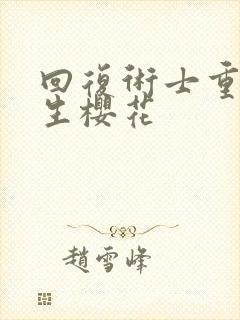 回復術士重
生櫻花
趙雪峰